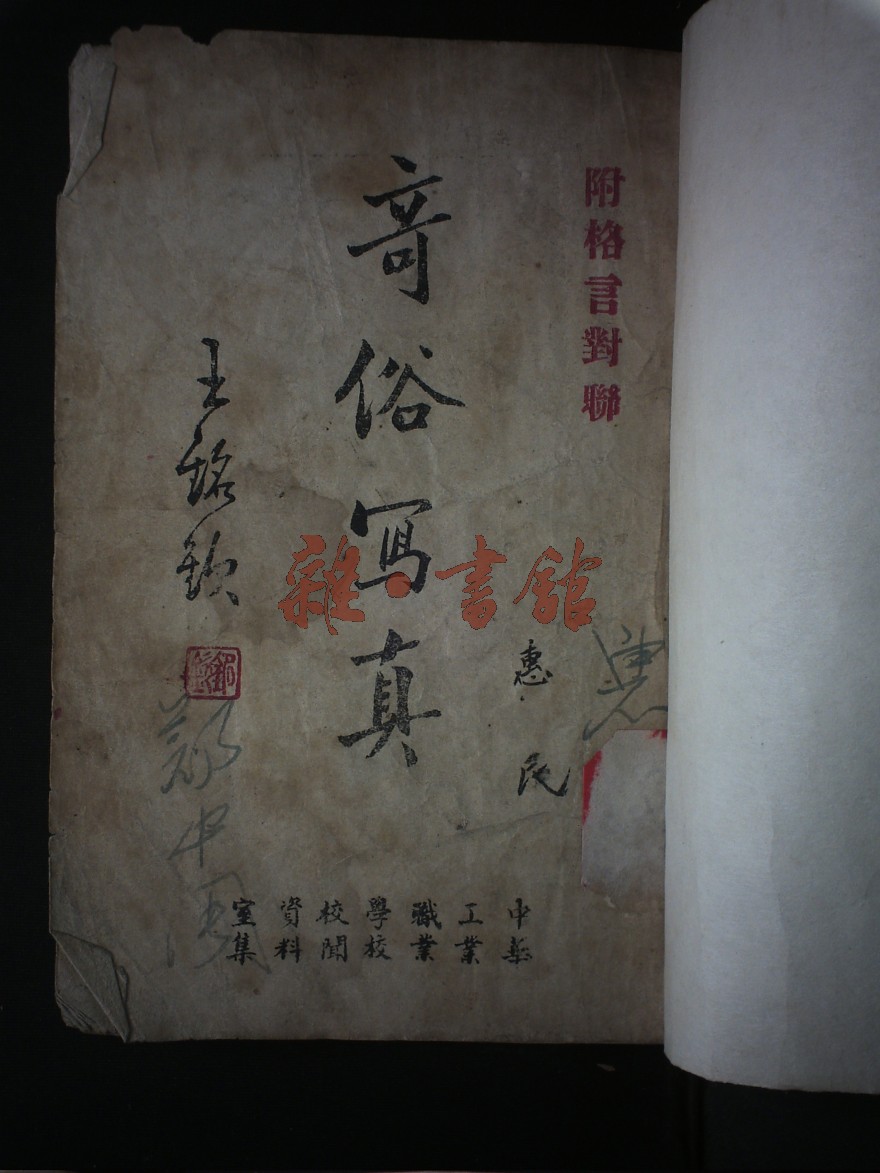 附格言對聯
惠民
奇俗寫真
王銘欽
中華
工業
職業
學校
校聞
資料
室集
雜·書館
惠